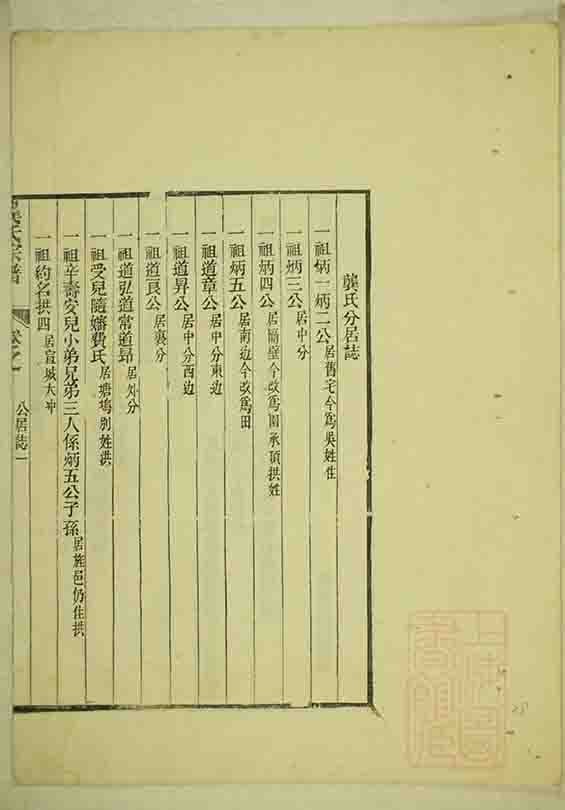 龔氏分居誌
一祖炳一炳二公居舊宅今爲吳姓住
一祖炳三公居中分
一祖炳四公居隔壁今改爲園承頂拱姓
一祖炳五公居南边今改爲田
一祖道章公居中分東边
一祖道昇公居中分西边
一祖道良公居裏分
一祖道弘道常道昂居外分
一祖受兒隨嬸費氏居塘塢別姓洪
一祖辛壽安兒小弟兄弟三人係炳五公子孫居旌邑仍住拱
一祖約名拱四居宣城大冲
氏宗譜
公居誌一
上海圖書館藏